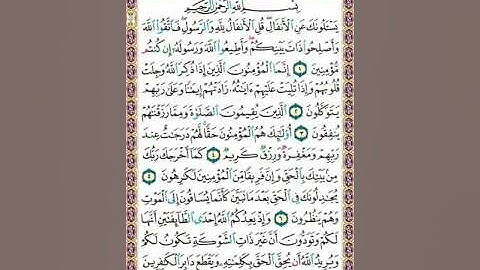 بِسْمِ اللَّهِ الرَّحْمَٰنِ الرَّحِيمِ
يَسْـَٔلُونَكَ عَنِ الْأَنفَالِ قُلِ الْأَنفَالُ لِلَّهِ وَالرَّسُولِ فَاتَّقُوا اللَّهَ
وَأَصْلِحُوا ذَاتَ بَيْنِكُمْ وَأَطِيعُوا اللَّهَ وَرَسُولَهُ إِن كُنتُم
مُّؤْمِنِينَ ١ إِنَّمَا الْمُؤْمِنُونَ الَّذِينَ إِذَا ذُكِرَ اللَّهُ وَجِلَتْ
قُلُوبُهُمْ وَإِذَا تُلِيَتْ عَلَيْهِمْ ءَايَٰتُهُ زَادَتْهُمْ إِيمَٰنًا وَعَلَىٰ رَبِّهِمْ
يَتَوَكَّلُونَ ٢ الَّذِينَ يُقِيمُونَ الصَّلَوٰةَ وَمِمَّا رَزَقْنَٰهُمْ
يُنفِقُونَ ٣ أُولَٰئِكَ هُمُ الْمُؤْمِنُونَ حَقًّا لَّهُمْ دَرَجَٰتٌ عِندَ
رَبِّهِمْ وَمَغْفِرَةٌ وَرِزْقٌ كَرِيمٌ ٤ كَمَا أَخْرَجَكَ رَبُّكَ
مِن بَيْتِكَ بِالْحَقِّ وَإِنَّ فَرِيقًا مِّنَ الْمُؤْمِنِينَ لَكَٰرِهُونَ ٥
يُجَٰدِلُونَكَ فِي الْحَقِّ بَعْدَ مَا تَبَيَّنَ كَأَنَّمَا يُسَاقُونَ إِلَى الْمَوْتِ
وَهُمْ يَنظُرُونَ ٦ وَإِذْ يَعِدُكُمُ اللَّهُ إِحْدَى الطَّائِفَتَيْنِ أَنَّهَا
لَكُمْ وَتَوَدُّونَ أَنَّ غَيْرَ ذَاتِ الشَّوْكَةِ تَكُونُ لَكُمْ
وَيُرِيدُ اللَّهُ أَن يُحِقَّ الْحَقَّ بِكَلِمَٰتِهِ وَيَقْطَعَ دَابِرَ الْكَٰفِرِينَ